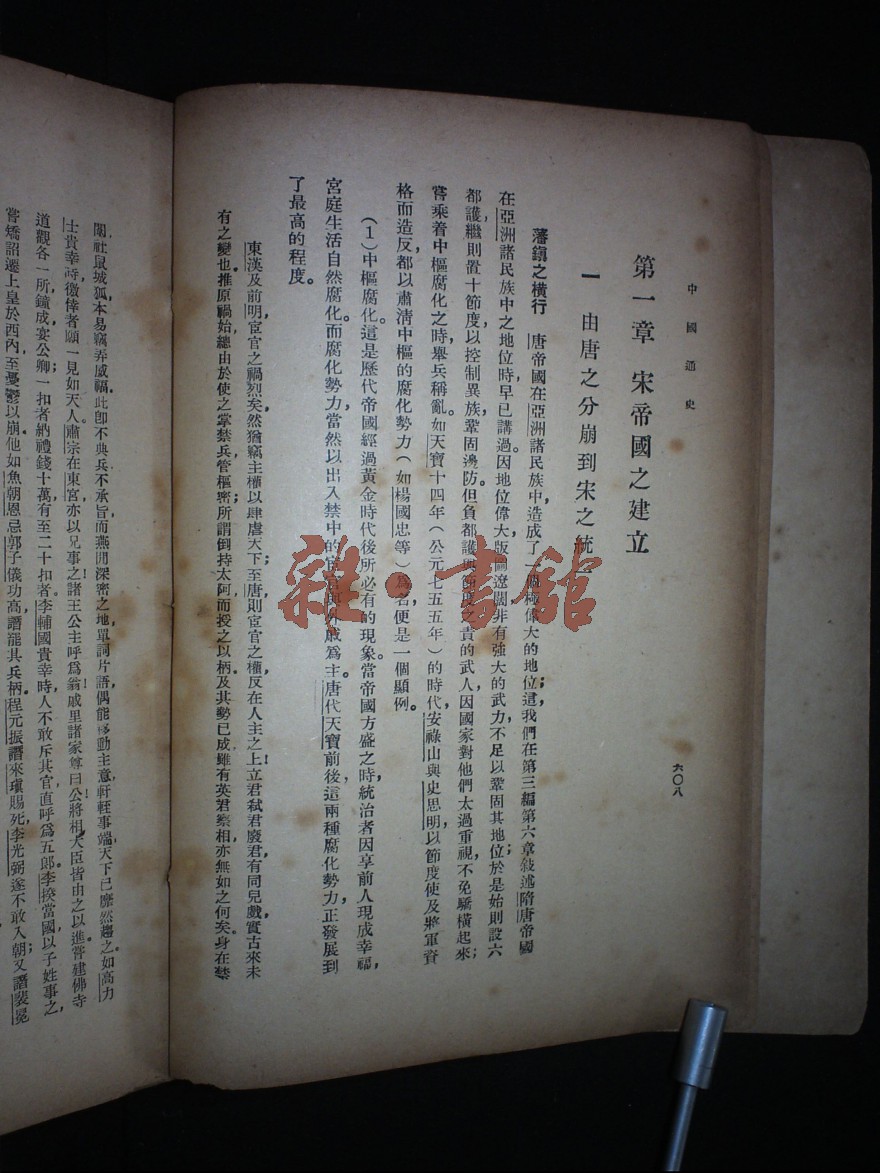 中國通史
六〇八
第一章 宋帝國之建立
一 由唐之分崩到宋之統一
藩鎭之橫行 唐帝國在亞洲諸民族中，造成了一個極偉大的地位；這，我們在第三編第六章敍述隋唐帝國
在亞洲諸民族中之地位時，早已講過。因地位偉大，版圖遼闊，非有強大的武力，不足以鞏固其地位；於是始則設六
都護，繼則置十節度，以控制異族，鞏固邊防。但負都護與節度之責的武人，因國家對他們太過重視，不免驕橫起來；
嘗乘着中樞腐化之時，舉兵稱亂。如天寶十四年（公元七五五年）的時代，安祿山與史思明以節度使及將軍資
格而造反，都以肅淸中樞的腐化勢力（如楊國忠等）爲名，便是一個顯例。
（1）中樞腐化。這是歷代帝國經過黃金時代後所必有的現象。當帝國方盛之時，統治者因享前人現成幸福，
宮庭生活自然腐化。而腐化勢力，當然以出入禁中的宦官與外戚爲主。唐代天寶前後，這兩種腐化勢力，正發展到
了最高的程度。
東漢及前明宦官之禍烈矣，然猶竊主權以肆虐天下；至唐則宦官之權反在人主之上，立君弒君廢君，有同兒戲，實古來未
有之變也。推原禍始，總由於使之掌禁兵，管樞密；所謂倒持太阿，而授之以柄，及其勢已成，雖有英君察相，亦無如之何矣。身在禁
闈，社鼠城狐，本易竊弄威福，此卽不典兵不承旨，而燕閒深密之地，單詞片語偶能移動主意，軒輊事端，天下已靡然趨之。如高力
士貴幸時，徼倖者願一見如天人。肅宗在東宮，亦以兄事之；諸王公主呼爲翁；戚里諸家尊曰公；將相大臣皆由之以進；嘗建佛寺
道觀各一所，鐘成，宴公卿，一扣者納禮錢十萬，有至二十扣者。李輔國貴幸時，人不敢斥其官，直呼爲五郎；李揆當國，以子姓事之，
嘗矯詔遷上皇於西內，至憂鬱以崩。他如魚朝恩忌郭子儀功高，譖罷其兵柄，程元振譖來瑱賜死，李光弼遂不敢入朝；又譖裴冕
雜·書館